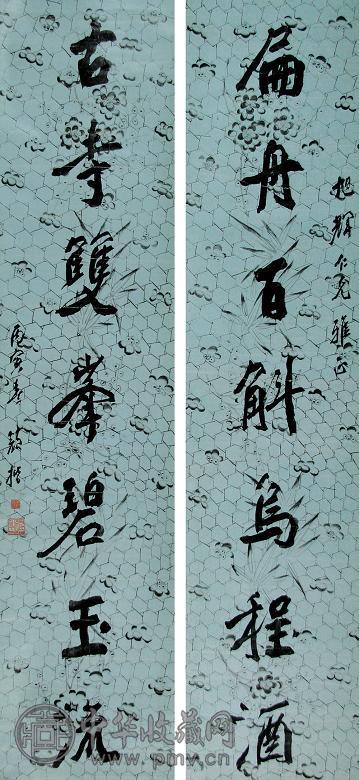 旭輝仁兄雅正
扁舟百斛烏程酒
古寺雙峯碧玉流
中华收藏网
www.pmv.cn